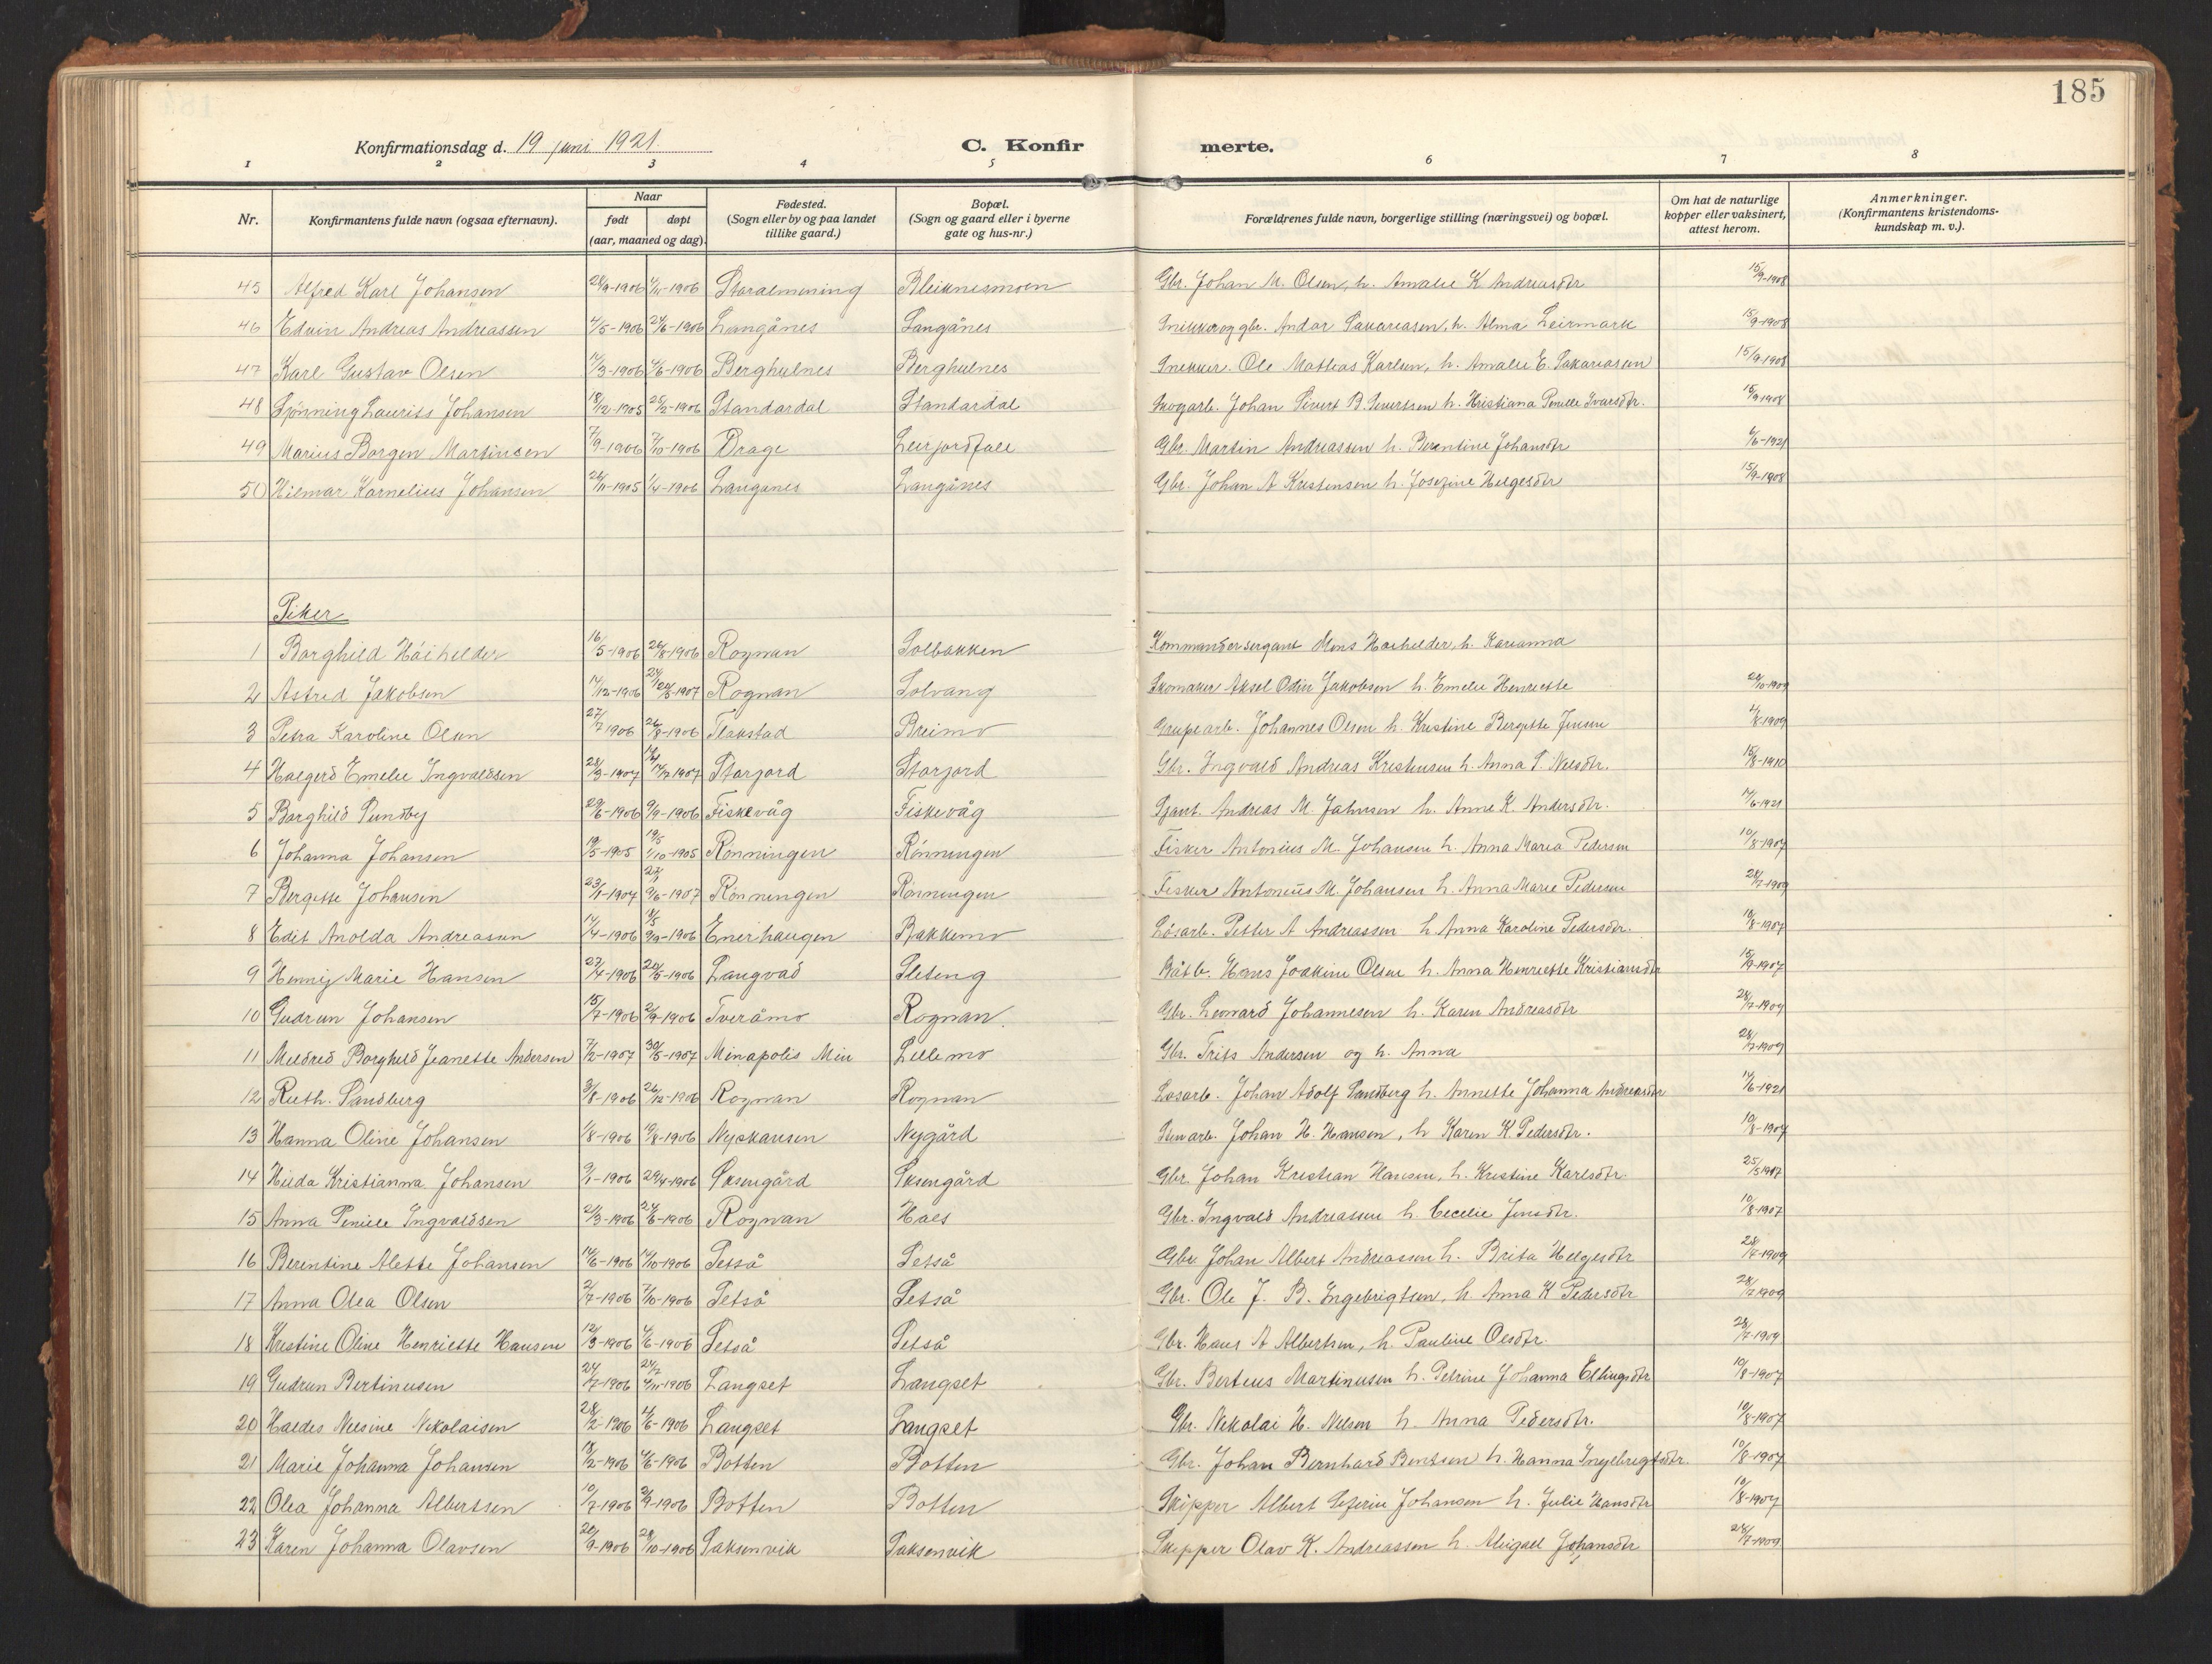 185
Konfirmationsdag d. 19 juni 1921.
C. Konfirmerte.
1 2 3 4 5 6 7 8
Nr. Konfirmantens fulde navn (ogsaa efternavn). Naar født døpt (aar, maaned og dag). Fødested. (Sogn eller by og paa landet tillike gaard.) Bopæl. (Sogn og gaard eller i byerne gate og hus-nr.) Forældrenes fulde navn, borgerlige stilling (næringsvei) og bopæl. Om hat de naturlige kopper eller vaksinert, attest herom. Anmerkninger. (Konfirmantens kristendoms-kundskap m. v.).
45 Alfred Karl Johansen 28/9-1906 4/11-1906 Storalmening Bleiknesmoen Gbr. Johan M. Olsen, h. Amalie K Andreasdtr 15/9-1908
46 Edvin Andreas Andreassen 4/5-1906 24/6-1906 Langånes Langånes Snikker og gbr. Andor Sakariasen, h. Alma Leirmark 15/9-1908
47 Karl Gustav Olsen 17/3-1906 4/6-1906 Berghulnes Berghulnes Snekker. Ole Mathias Karlsen, h. Amalie E. Sakariasen 15/9-1908
48 Hjørning Laurits Johansen 18/12-1905 25/2-1906 Standardal Standardal Skogarb. Johan Sivert B. Sivertsen h. Kristiana Pernille Ivarsdtr. 15/9-1908
49 Marius Borgen Martinsen 7/9-1906 7/10-1906 Drage Leirjordfall Gbr. Martin Andreassen h. Berentine Johansdtr 6/6-1921
50 Hilmar Kornelius Johansen 24/11-1905 1/4-1906 Langånes Langånes Gbr. Johan A Kristensen h. Josefine Helgesdtr 15/9-1908
Piker
1 Borghild Höihilder 16/5-1906 26/8-1906 Rognan Solbakken Kommandersergant Mons Hoihilder, h. Karianna
2 Astrid Jakobsen 14/12-1906 20/5-1907 Rognan Solvang Skomaker Aksel Odin Jakobsen h. Emelie Henriette 28/10-1909
3 Petra Karoline Olsen 27/7 1906 26/8-1906 Flakstad Breimo Grupearb. Johannes Olsen h. Kristine Bergitte Jensen 4/8-1909
4 Halgerd Emelie Ingvaldsen 28/3-1907 14/7 1907 Storjord Storjord Gbr. Ingvald Andreas Kristensen h. Anna P. Nilsdtr. 15/8-1910
5 Borghild Sundby 29/6-1906 9/9-1906 Fiskevåg Fiskevåg Gjant. Andreas M. Jahnsen h. Anne K. Andersdtr. 14/6-1921
6 Johanna Johansen 19/5-1905 1/10-1905 Rönningen Rönningen Fisker Antonius M. Johansen h. Anna Maria Pedersen 10/8-1907
7 Bergitte Johansen 23/1-1907 9/6-1907 Rönningen Rönningen Fisker Antonius M. Johansen h. Anna Marie Pedersen 28/7-1909
8 Edit Anolda Andreasen 14/4-1906 9/9-1906 Enerhaugen Bakkemo Lösarb. Petter A Andreassen h. Anna Karoline Pedersdtr. 10/8-1907
9 Henny Marie Hansen 27/4-1906 20/5-1906 Langvad Sleteng Båtb. Hans Joakim Olsen h. Anna Henriette Kristiansdtr 15/9-1907
10 Gudrun Johansen 15/7-1906 2/9-1906 Tveråmo Rognan Gbr. Leonard Johannesen h. Karen Andreasdtr 28/7-1909
11 Mildred Borghild Jeanette Andersen 7/2-1907 30/5-1907 Minapolis Min Lillemo Gbr. Frits Andersen og h. Anna 28/7-1909
12 Ruth. Sandberg 3/8-1906 26/12-1906 Rognan Rognan Losarb. Johan Adolf Sandberg h. Annette Johanna Andreasdtr 14/6-1921
13 Hanna Oline Johansen 1/8-1906 19/8-1906 Nyskausen Nygård Stenarb. Johan H. Hansen, h Karen K. Pedersdtr. 10/8-1907
14 Hilda Kristianna Johansen 9/1-1906 29/4-1906 Saksengård Saksengård Gbr. Johan Kristian Hansen, h. Kristine Karlsdtr. 25/5 1907
15 Anna Pernille Ingvaldsen 21/3-1906 24/6-1906 Rognan Hals Gbr. Ingvald Andreassen h. Cecelie Jensdtr. 10/8-1907
16 Berentine Alette Johansen 14/6-1906 14/10-1906 Setså Setså Gbr. Johan Albert Andreassen h. Brita Helgesdtr 28/7-1909
17 Anna Olea Olsen 2/7-1906 7/10-1906 Setså Setså Gbr. Ole J. B. Ingebrigtsen, h. Anna K Pedersdtr 28/7 1909
18 Kristine Oline Henriette Hansen 12/3-1906 4/6-1906 Setså Setså Gbr. Hans A Albertsen, h. Pauline Olsdtr. 28/7-1909
19 Gudrun Bertinusen 24/7-1906 4/11-1906 Langset Langset Gbr. Bertius Martinusen h. Petrine Johanna Ellingsdtr 10/8-1907
20 Haldis Nilsine Nikolaisen 28/2-1906 4/6-1906 Langset Langset Gbr. Nikolai H. Nilsen h. Anna Pedersdtr. 10/8-1907
21 Marie Johanna Johansen 18/2-1906 4/6-1906 Botten Botten Gbr. Johan Bernhard Bentsen h. Hanna Ingebrigtsdtr. 10/8-1907
22 Olea Johanna Albertsen 10/7-1906 2/9-1906 Botten Botten Skipper Albert Johansen h. Julie Hansdtr 10/8-1907
23 Karen Johanna Olavsen 20/9-1906 28/10-1906 Saksenvik Saksenvik Skipper Olav K. Andreassen h. Abigael Johansdtr 28/7-1909